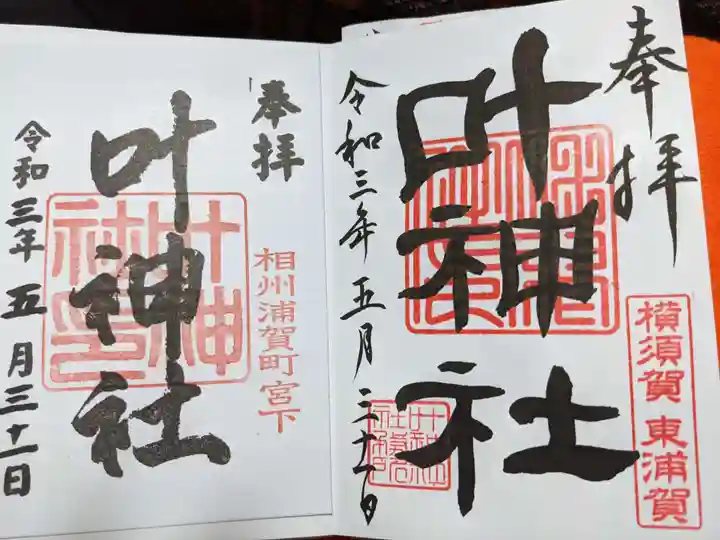 奉拝
叶神社
横須賀 東浦賀
令和三年五月三十一日
奉拝
叶神社
相州浦賀町宮下
叶神社印
令和三年五月三十一日